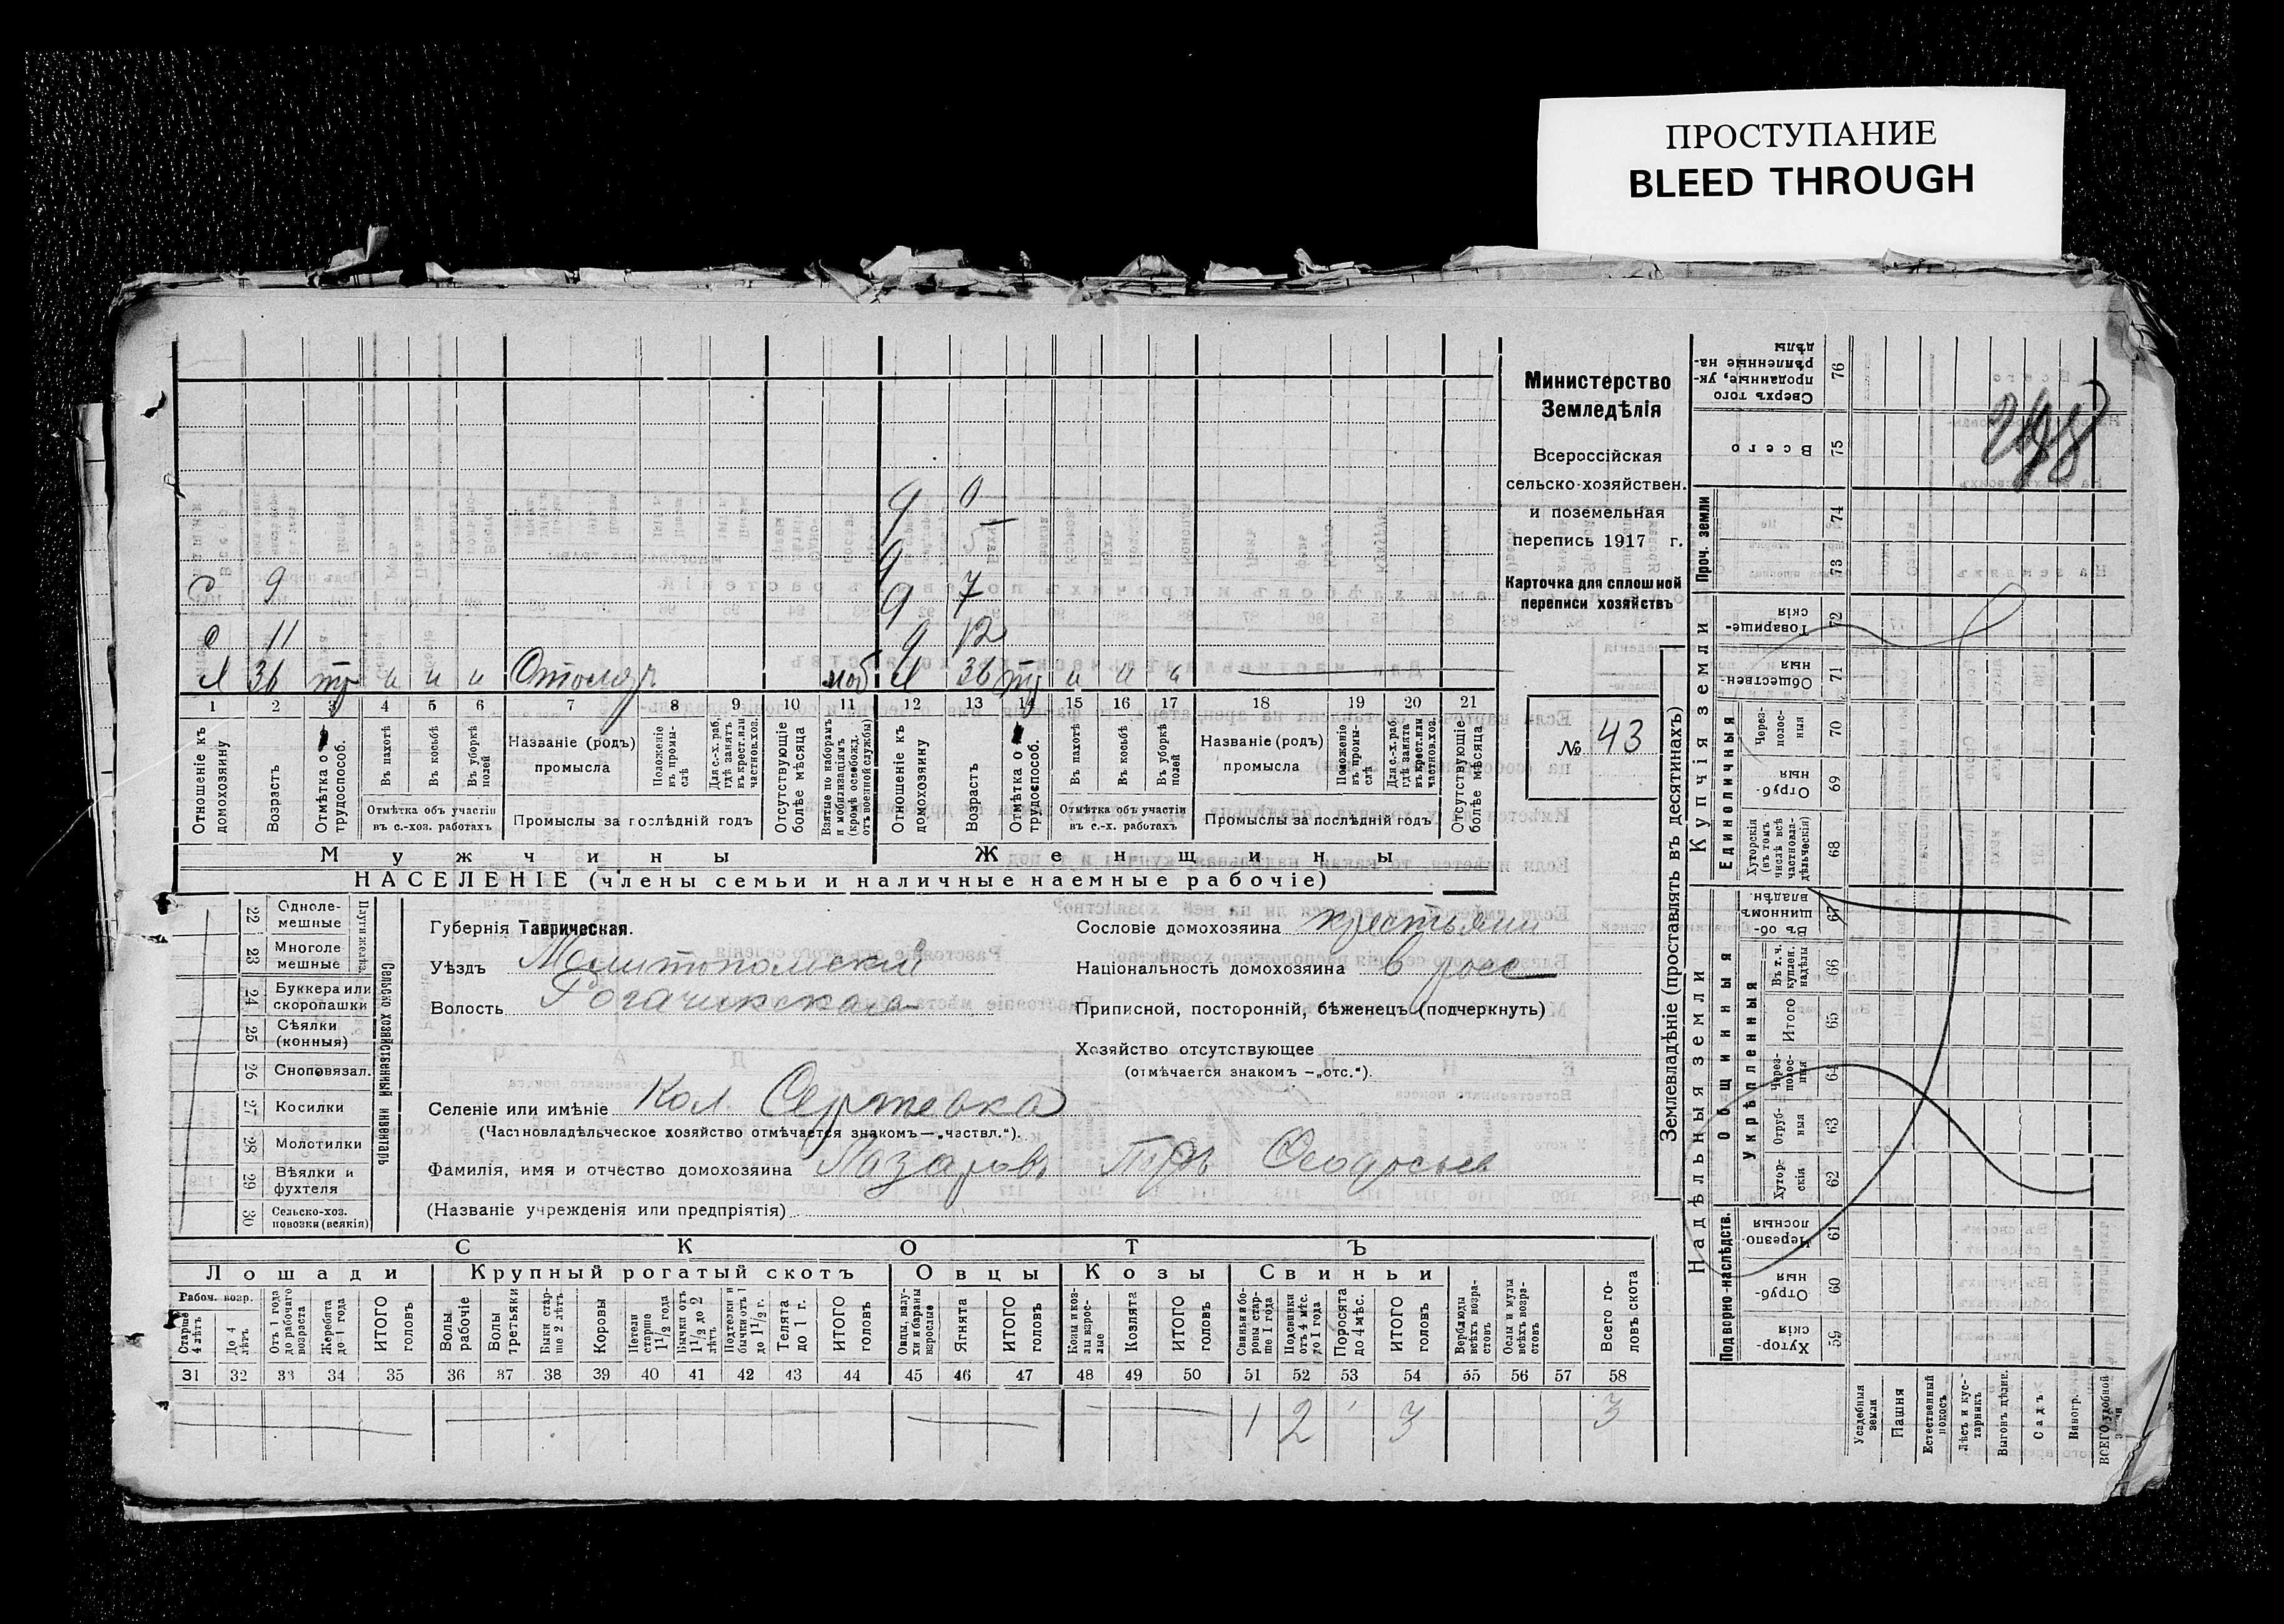 ПРОСТУПАНИЕ
BLEED THROUGH
248
Министерство
Земледѣлія
Всероссійская
сельско-хозяйствен.
и поземельная
перепись 1917 г.
Карточка для сплошной
переписи хозяйствъ
№ 43
Ч 0
Ч 5
С 9 Ч 7
С 11 Ч 12
36 тр и и и Столяр моб 36 тр и и и
1 2 3 4 5 6 7 8 9 10 11 12 13 14 15 16 17 18 19 20 21
Отношеніе къ домохозяину
Возрастъ
Отмѣтка о трудоспособ.
Въ пахотѣ
Въ косьбѣ
Въ уборкѣ полей
Отмѣтка объ участіи въ с.-хоз. работахъ
Названіе (родъ) промысла
Положеніе въ промыслѣ
Для с.-х. раб., гдѣ занятъ въ крест. или частнов. хоз.
Промыслы за послѣдній годъ
Отсутствующіе болѣе мѣсяца
Взятые по наборамъ и мобилизаціямъ (кромѣ освобожд. отъ военной службы)
Отношеніе къ домохозяину
Возрастъ
Отмѣтка о трудоспособ.
Въ пахотѣ
Въ косьбѣ
Въ уборкѣ полей
Отмѣтка объ участіи въ с.-х. работахъ
Названіе (родъ) промысла
Положеніе въ промыслѣ
Для с.-х. раб. гдѣ занята въ крест. или частнов. хоз.
Промыслы за послѣдній годъ
Отсутствующіе болѣе мѣсяца
Мужчины Женщины
НАСЕЛЕНІЕ (члены семьи и наличные наемные рабочіе)
22 Однолемешные
23 Многолемешные
Плуги желѣз.
24 Буккера или скоропашки
25 Сѣялки (конныя)
26 Сноповязал.
27 Косилки
28 Молотилки
29 Вѣялки и фухтеля
30 Сельско-хоз. повозки (всякія)
Сельско хозяйственный инвентарь
Губернія Таврическая.
Уѣздъ Мелитопольскій
Волость Рогачикская
Селеніе или имѣніе Кол. Сергѣевка
(Частновладѣльческое хозяйство отмѣчается знакомъ—„частвл.“).
Фамилія, имя и отчество домохозяина Лазаровъ Петръ Феодосьев
(Названіе учрежденія или предпріятія)
Сословіе домохозяина крестьянин
Національность домохозяина в росс
Приписной, посторонній, бѣженецъ (подчеркнуть)
Хозяйство отсутствующее
(отмѣчается знакомъ —„отс.“).
СКОТЪ
Лошади Крупный рогатый скотъ Овцы Козы Свиньи
Рабоч. возр.
Старше 4 лѣтъ
До 4 лѣтъ
Отъ 1 года до рабочаго возраста
Жеребята до 1 года
ИТОГО головъ
Волы рабочіе
Волы третьяки
Быки старше 2 лѣтъ
Коровы
Нетели старше 1 1/2 года
Бычки отъ 1 1/2 до 2 лѣтъ
Подтелки и бычки отъ 1 до 1 1/2 г.
Телята до 1 г.
ИТОГО головъ
Овцы, валухи и бараны взрослые
Ягнята
ИТОГО головъ
Козы и козлы взрослые
Козлята
ИТОГО головъ
Свиньи и боровы старше 1 года
Подсвинки отъ 4 мѣс. до 1 года
Поросята до 4 мѣс.
ИТОГО головъ
Верблюды всѣхъ возрастовъ
Ослы и мулы всѣхъ возрастовъ
Всего головъ скота
31 32 33 34 35 36 37 38 39 40 41 42 43 44 45 46 47 48 49 50 51 52 53 54 55 56 57 58
1 2 3 3
Землевладѣніе (проставлять въ десятинахъ)
Купчія земли
Проч. земли
Единоличныя
Надѣльныя земли
Общинныя
Укрѣпленныя
Подворно-наслѣдств.
Сверхъ того проданные, укрѣпленные надѣлы 76
Всего 75
74
73
Товарищескія 72
Общественныя 71
Черезполосныя 70
Отрубныя 69
Хуторскія (въ томъ числѣ всѣ частновладѣльческія) 68
Въ общинномъ владѣн. 67
Въ т. ч. куплен. надѣлы 66
Итого 65
Черезполосныя 64
Отрубныя 63
Хуторскія 62
Черезполосныя 61
Отрубныя 60
Хуторскія 59
Усадебныя земли
Пашня
Естественный покосъ
Лѣсъ и кустарникъ
Выгонъ
Садъ
Виногр.
ВСЕГО удобной